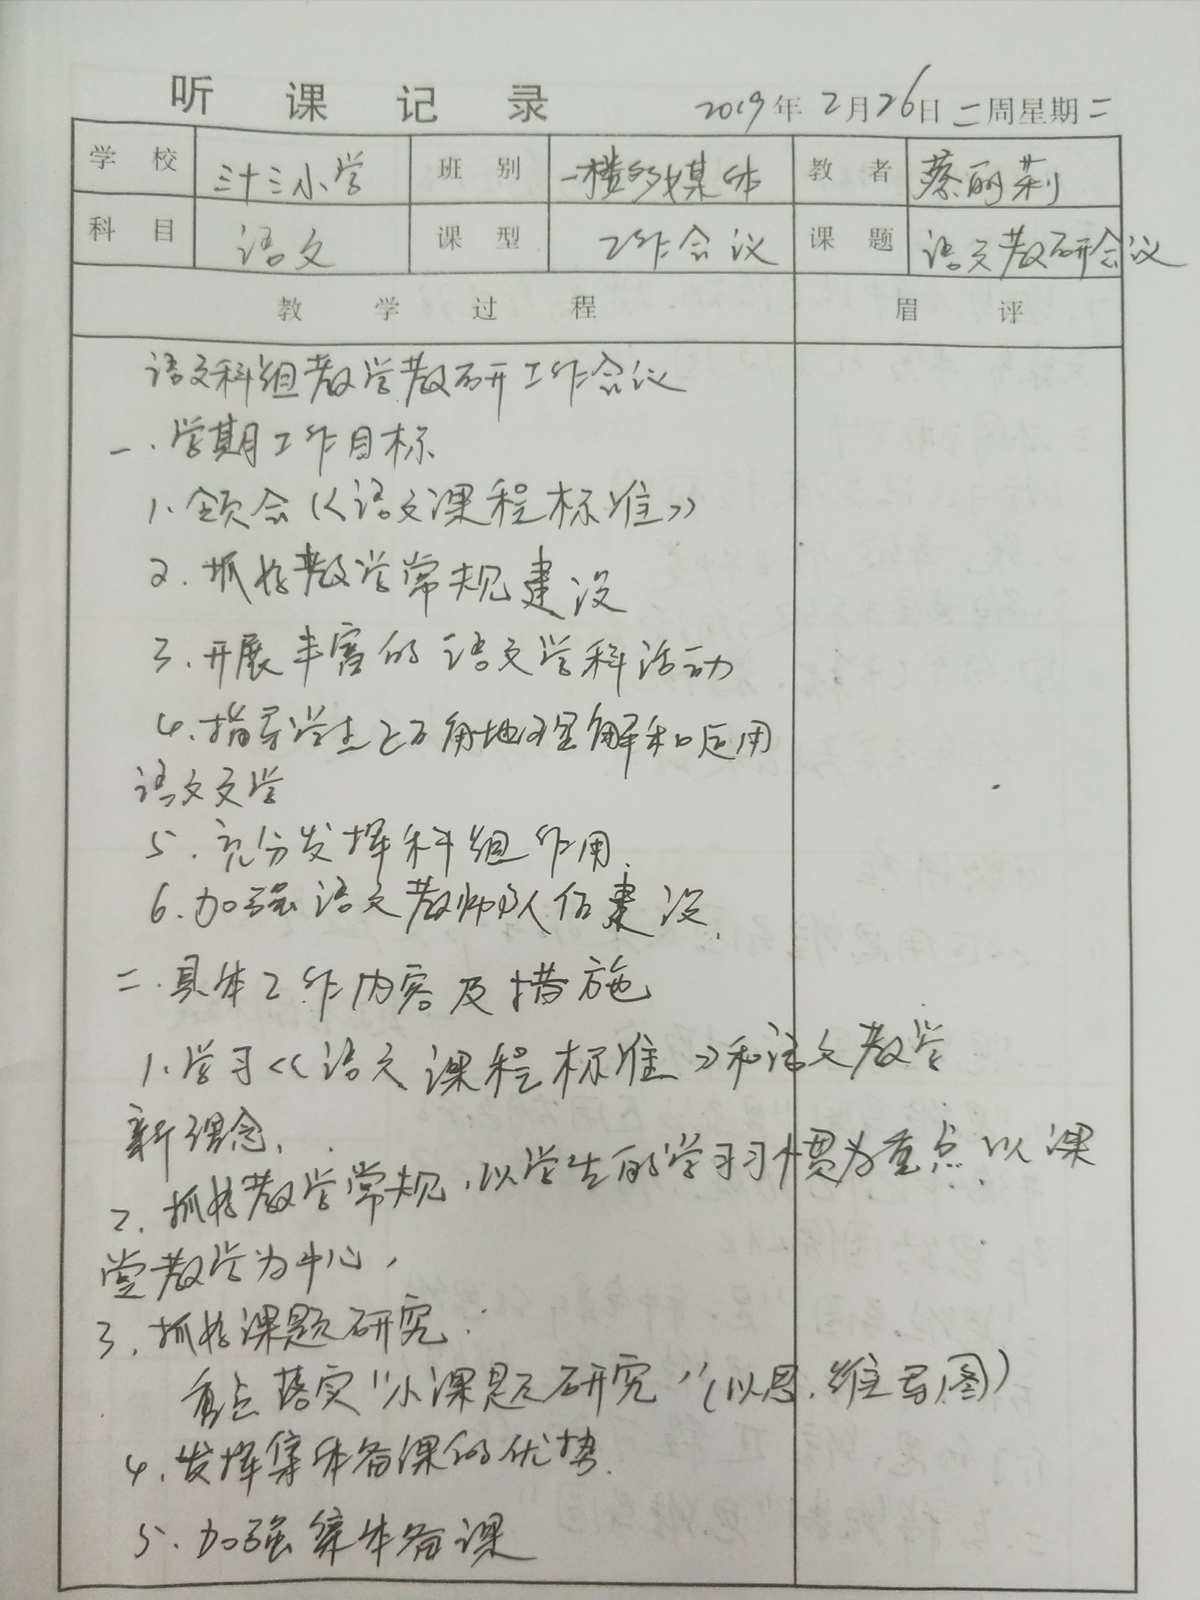 听课记录 2019年2月26日二周星期二
学校 三十三小学 班别 一楼多媒体 教者 蔡丽莉
科目 语文 课型 工作会议 课题 语文教研会议
教学过程 眉评
语文科组教学教研工作会议
一、学期工作目标
1、领会《语文课程标准》
2、抓好教学常规建设
3、开展丰富的语文学科活动
4、指导学生正确地理解和运用
语文文学
5、充分发挥科组作用.
6、加强语文教师队伍建设.
二、具体工作内容及措施
1、学习《语文课程标准》和语文教学
新理念、
2、抓好教学常规,以学生的学习习惯为重点,以课
堂教学为中心,
3、抓好课题研究.
重点落实"小课题研究"(以思维导图)
4、发挥集体备课的优势.
5、加强集体备课